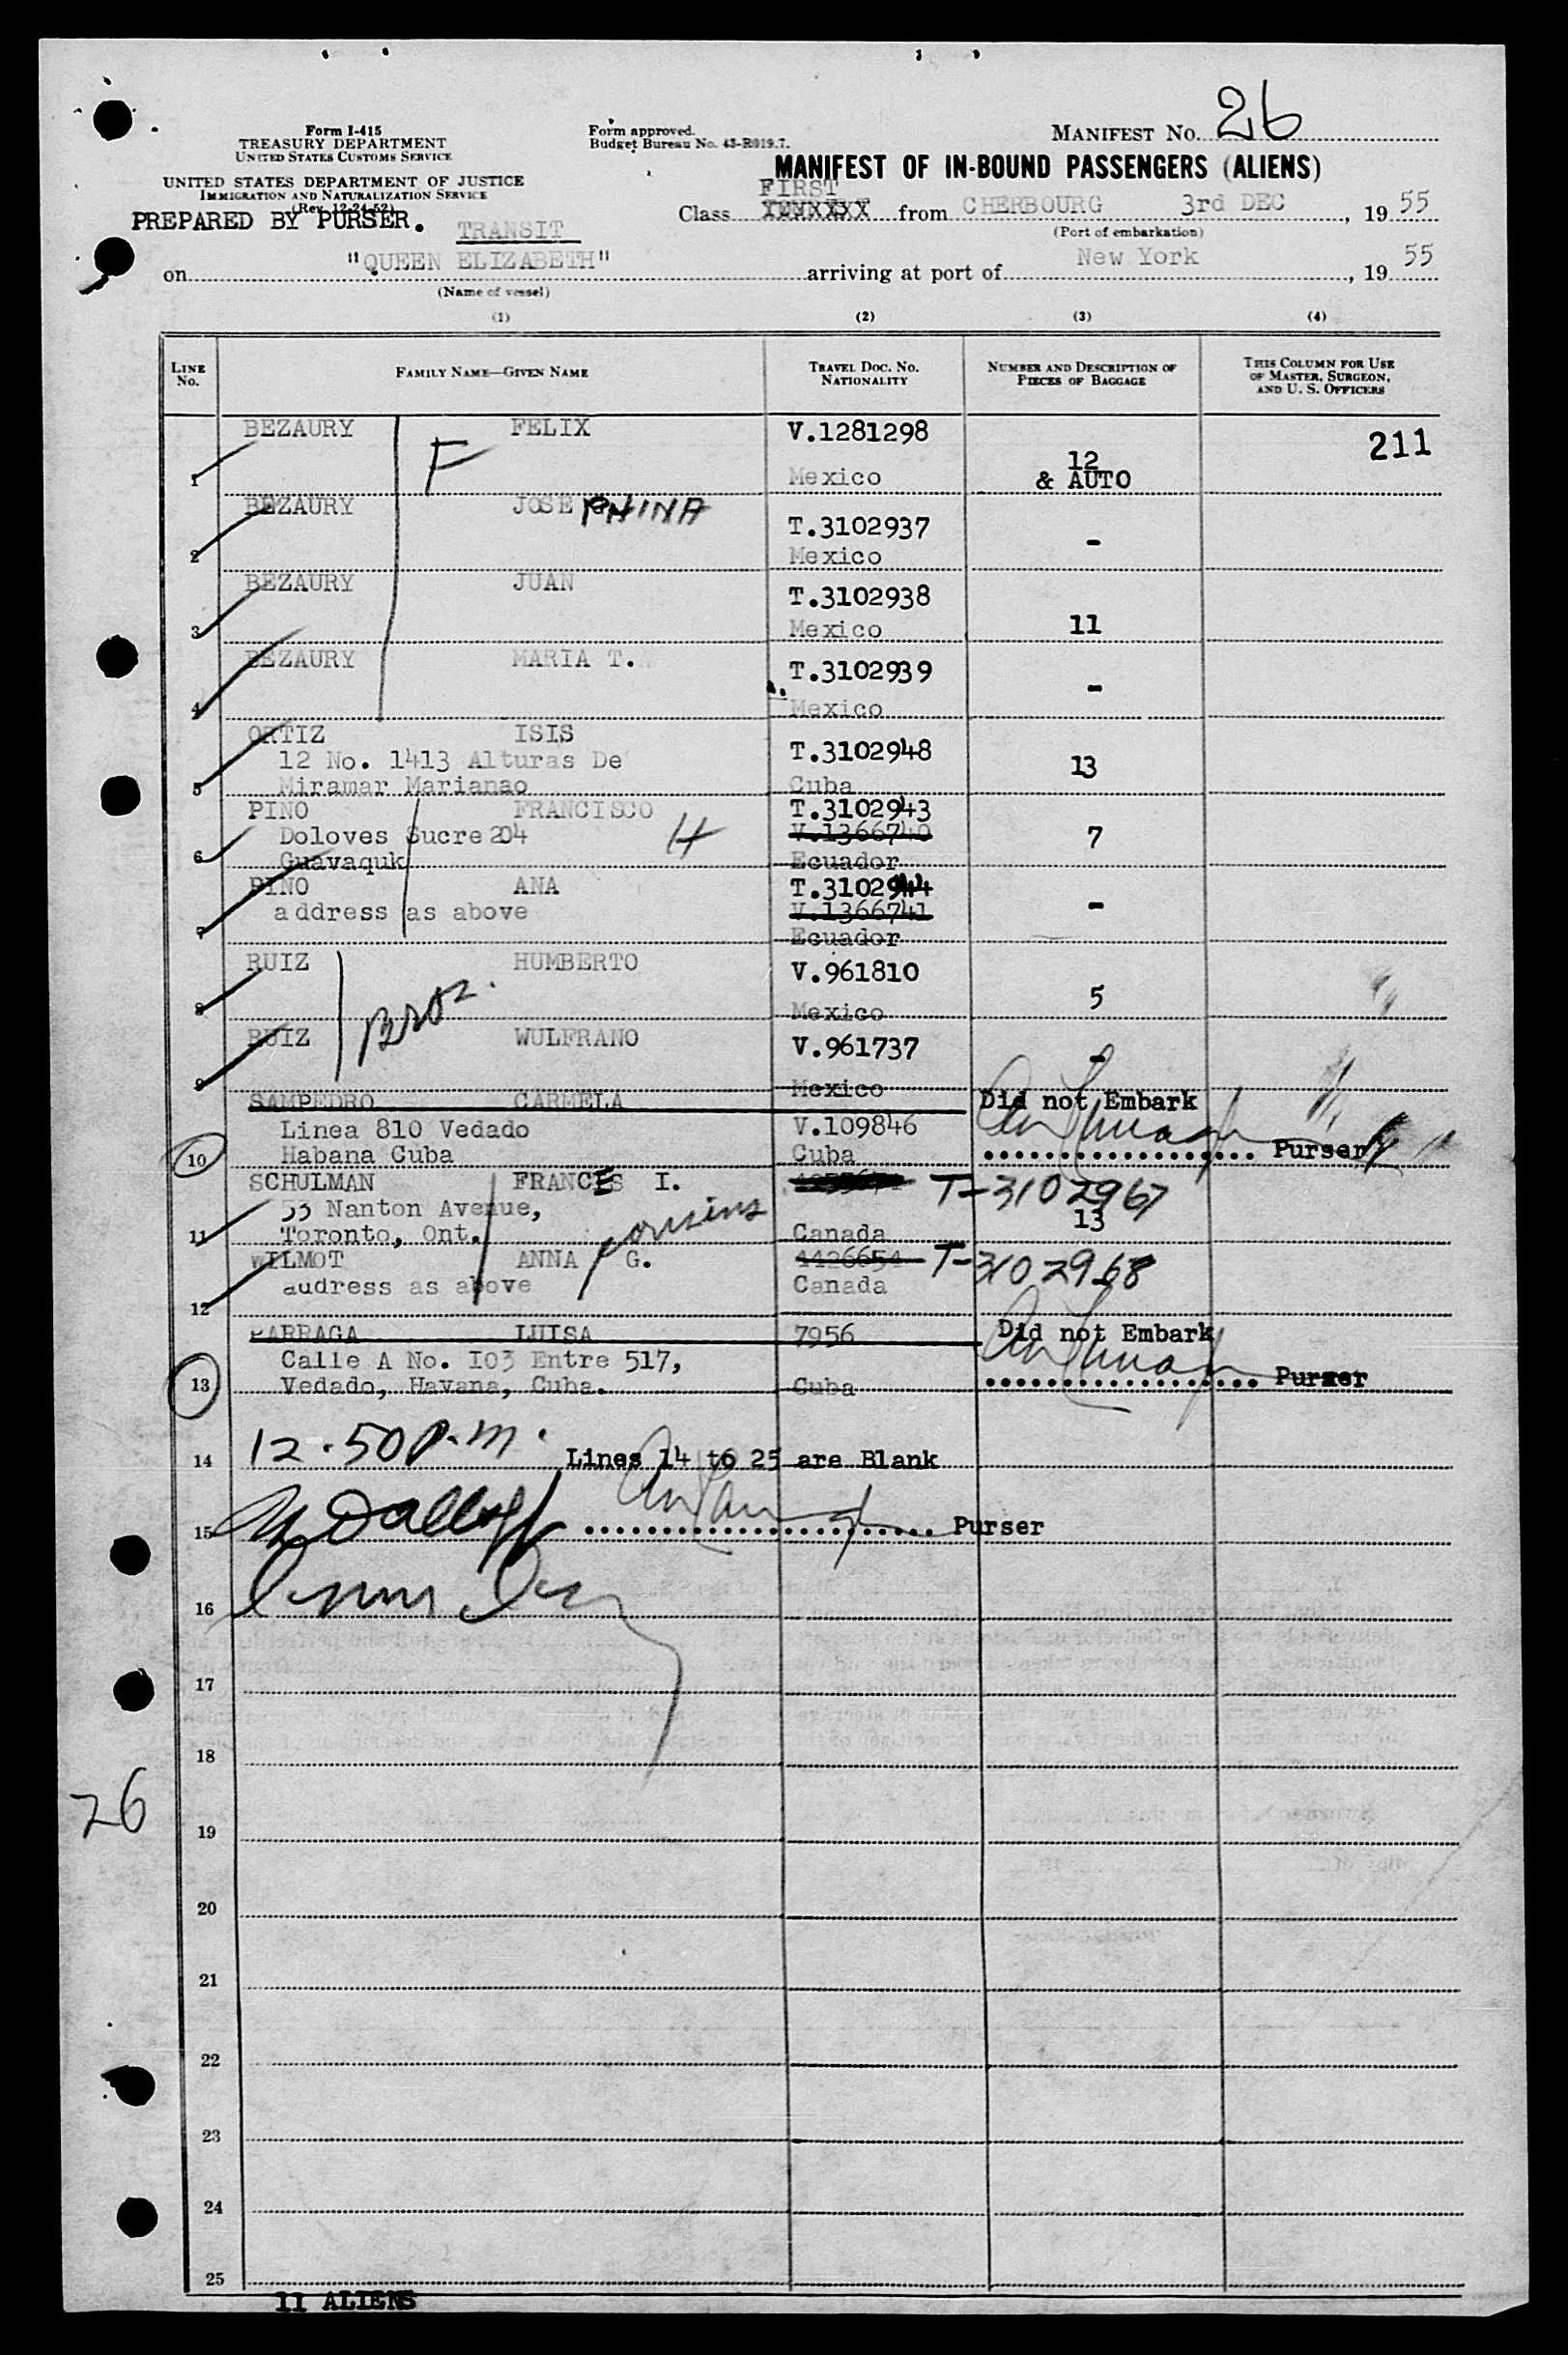 MANIFEST NO. 26
Form I-415
TREASURY DEPARTMENT
UNITED STATES CUSTOMS SERVICE
Form approved.
Budget Bureau No. 43-R019.7.
UNITED STATES DEPARTMENT OF JUSTICE
IMMIGRATION AND NATURALIZATION SERVICE
(Rev. 12-24-52)
MANIFEST OF IN-BOUND PASSENGERS (ALIENS)
PREPARED BY PURSER.
TRANSIT
FIRST
Class from CHERBOURG 3rd DEC, 1955
(Port of embarkation)
on "QUEEN ELIZABETH" arriving at port of New York, 1955
(Name of vessel)
(1) (2) (3) (4)
LINE No. FAMILY NAME—GIVEN NAME TRAVEL DOC. NO. NATIONALITY NUMBER AND DESCRIPTION OF PIECES OF BAGGAGE THIS COLUMN FOR USE OF MASTER, SURGEON, AND U. S. OFFICERS
BEZAURY F FELIX V.1281298 211
1 Mexico 12 & AUTO
BEZAURY JOSEPHINA T.3102937
2 Mexico -
BEZAURY JUAN T.3102938
3 Mexico 11
BEZAURY MARIA T. T.3102939
4 Mexico -
ORTIZ ISIS
12 No. 1413 Alturas De T.3102948 13
5 Miramar Marianao Cuba
PINO FRANCISCO T.3102943
Doloves Sucre 204 H V.1366740 7
6 Guavaquk Ecuador
PINO ANA T.3102944
address as above V.1366741 -
7 Ecuador
RUIZ HUMBERTO V.961810
8 Bros. Mexico 5
RUIZ WULFRANO V.961737
9 Mexico -
SAMPEDRO CARMELA Did not Embark
Linea 810 Vedado V.109846
10 Habana Cuba Cuba Purser
SCHULMAN FRANCES I. T-3102967
53 Nanton Avenue, cousins 13
11 Toronto, Ont. Canada
WILMOT ANNA G. 4426654 T-3102968
address as above Canada
12
PARRAGA LUISA 7956 Did not Embark
Calle A No. I03 Entre 517,
13 Vedado, Havana, Cuba. Cuba Purser
14 12.50 P.m. Lines 14 to 25 are Blank
15 Purser
16
17
18
26
19
20
21
22
23
24
25
11 ALIENS